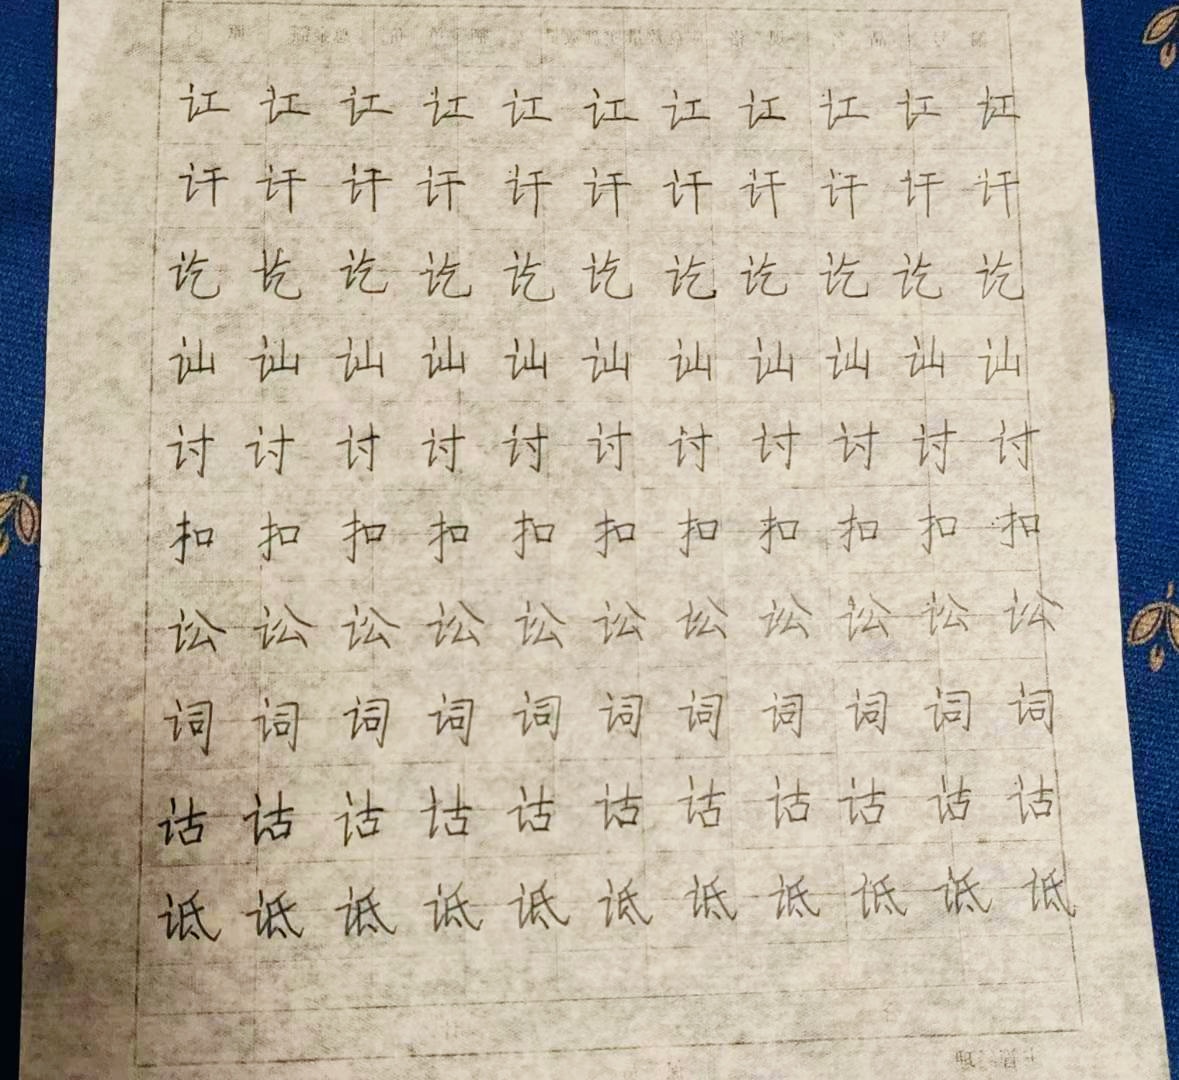 讧 讧 讧 讧 讧 讧 讧 讧 讧 讧 讧
讦 讦 讦 讦 讦 讦 讦 讦 讦 讦 讦
讫 讫 讫 讫 讫 讫 讫 讫 讫 讫 讫
讪 讪 讪 讪 讪 讪 讪 讪 讪 讪 讪
讨 讨 讨 讨 讨 讨 讨 讨 讨 讨 讨
扣 扣 扣 扣 扣 扣 扣 扣 扣 扣 扣
讼 讼 讼 讼 讼 讼 讼 讼 讼 讼 讼
词 词 词 词 词 词 词 词 词 词 词
诂 诂 诂 诂 诂 诂 诂 诂 诂 诂 诂
诋 诋 诋 诋 诋 诋 诋 诋 诋 诋 诋